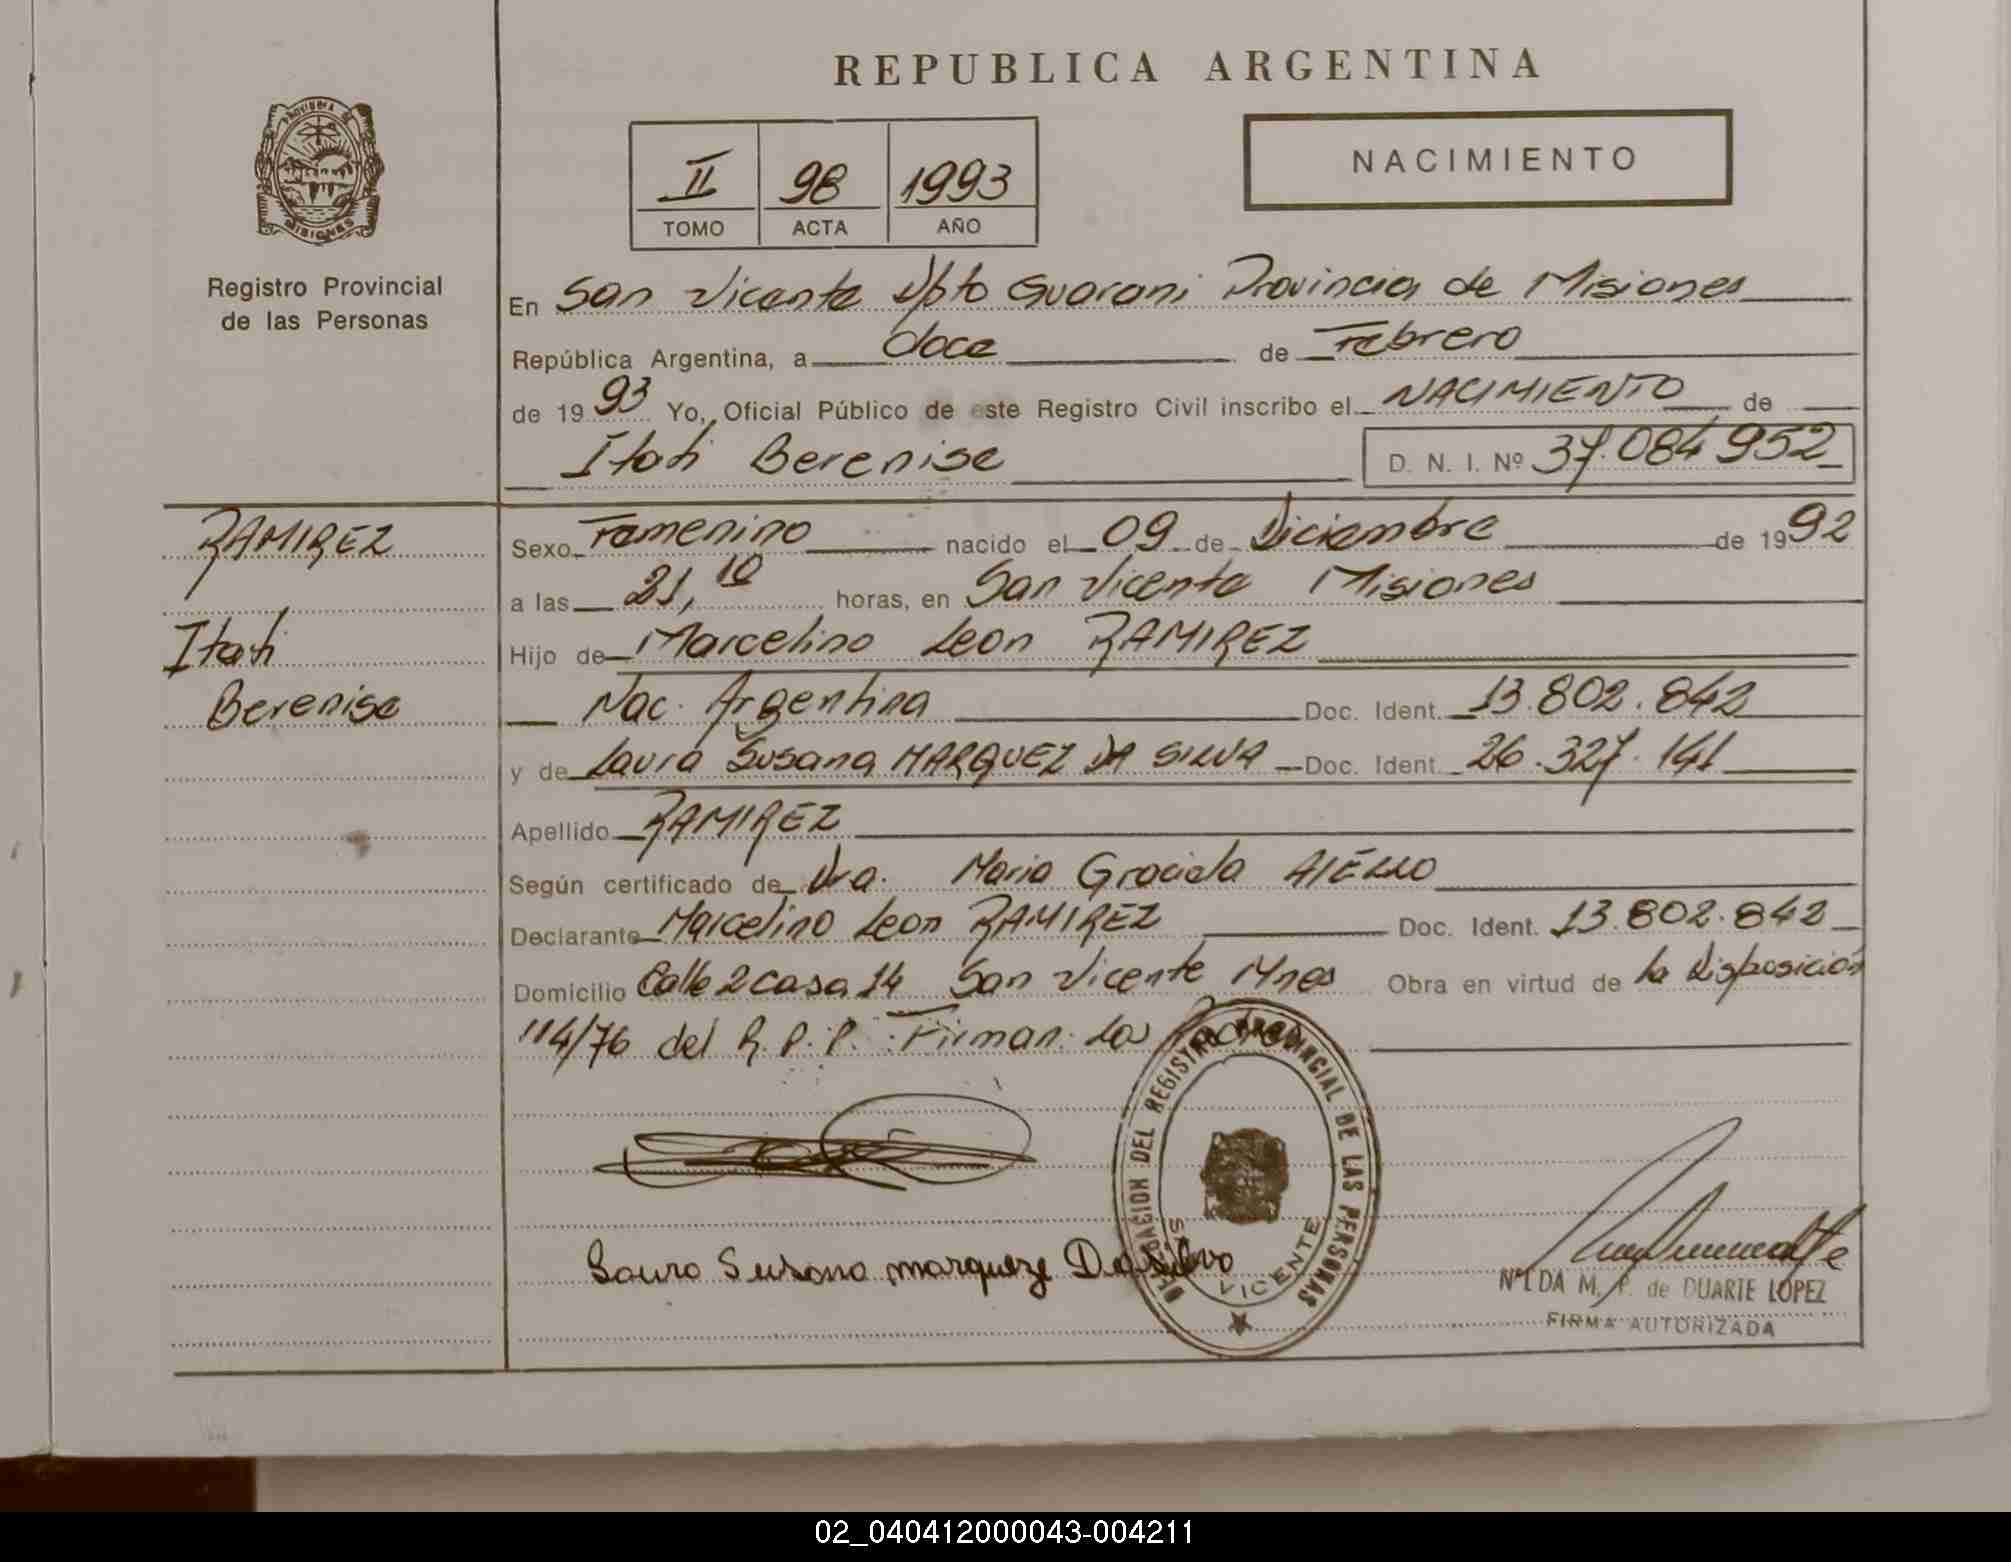 REPUBLICA ARGENTINA
PROVINCIA DE
MISIONES
Registro Provincial
de las Personas
II 98 1993
TOMO ACTA AÑO
NACIMIENTO
En San Vicente Dpto Guarani Provincia de Misiones
República Argentina, a doce de Febrero
de 1993 Yo, Oficial Público de este Registro Civil inscribo el NACIMIENTO de
Itati Berenise D. N. I. Nº 37.084952
RAMIREZ
Itati
Berenise
Sexo Femenino nacido el 09 de Diciembre de 1992
a las 21,10 horas, en San Vicente Misiones
Hijo de Marcelino Leon RAMIREZ
Nac. Argentina Doc. Ident. 13.802.842
y de Laura Susana MARQUEZ DA SILVA Doc. Ident. 26.327.141
Apellido RAMIREZ
Según certificado de Dra. Maria Graciela AIELLO
Declarante Marcelino Leon RAMIREZ Doc. Ident. 13.802.842
Domicilio Calle 2 casa 14 San Vicente Mnes Obra en virtud de la Disposición
114/76 del R.P.P. Firman los Padres
DELEGACION DEL REGISTRO PROVINCIAL DE LAS PERSONAS
VICENTE
Laura Susana marqueze Dasilva
NELDA M. P. de DUARTE LOPEZ
FIRMA AUTORIZADA
02_040412000043-004211